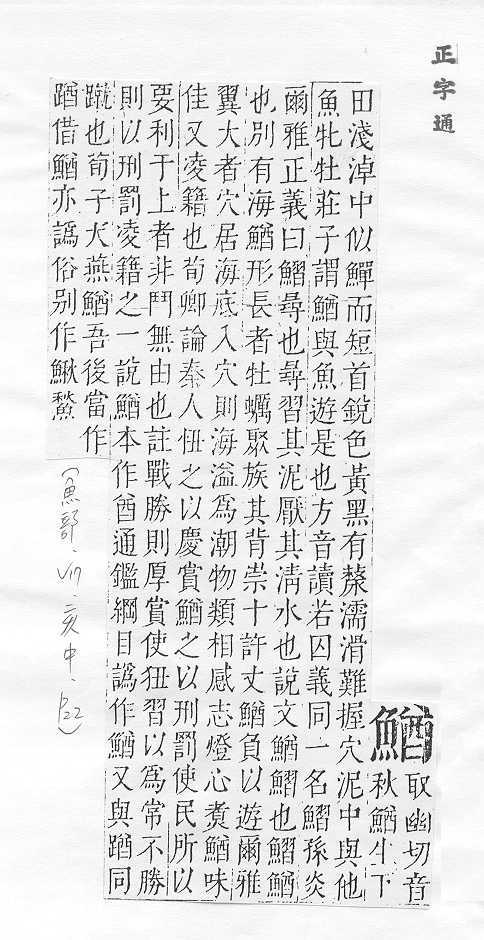 正字通
鰌
取幽切音
秋鰌生下
田淺淖中似鱓而短首銳色黃黑有漦濡滑難握穴泥中與他
魚牝牡莊子謂鰌與魚遊是也方音讀若囚義同一名鰼孫炎
爾雅正義曰鰼尋也尋習其泥厭其清水也說文鰌鰼也鰼鰌
也別有海鰌形長者牡蠣聚族其背崇十許丈鰌負以遊爾雅
翼大者穴居海底入穴則海溢爲潮物類相感志燈心煑鰌味
佳又凌籍也荀卿論秦人忸之以慶賞鰌之以刑罰使民所以
要利于上者非鬥無由也註戰勝則厚賞使狃習以爲常不勝
則以刑罰凌籍之一說鰌本作酋通鑑綱目譌作鰌又與同
蹴也荀子大燕鰌吾後當作
借鰌亦譌俗別作鰍
(魚部、亥中、P22)